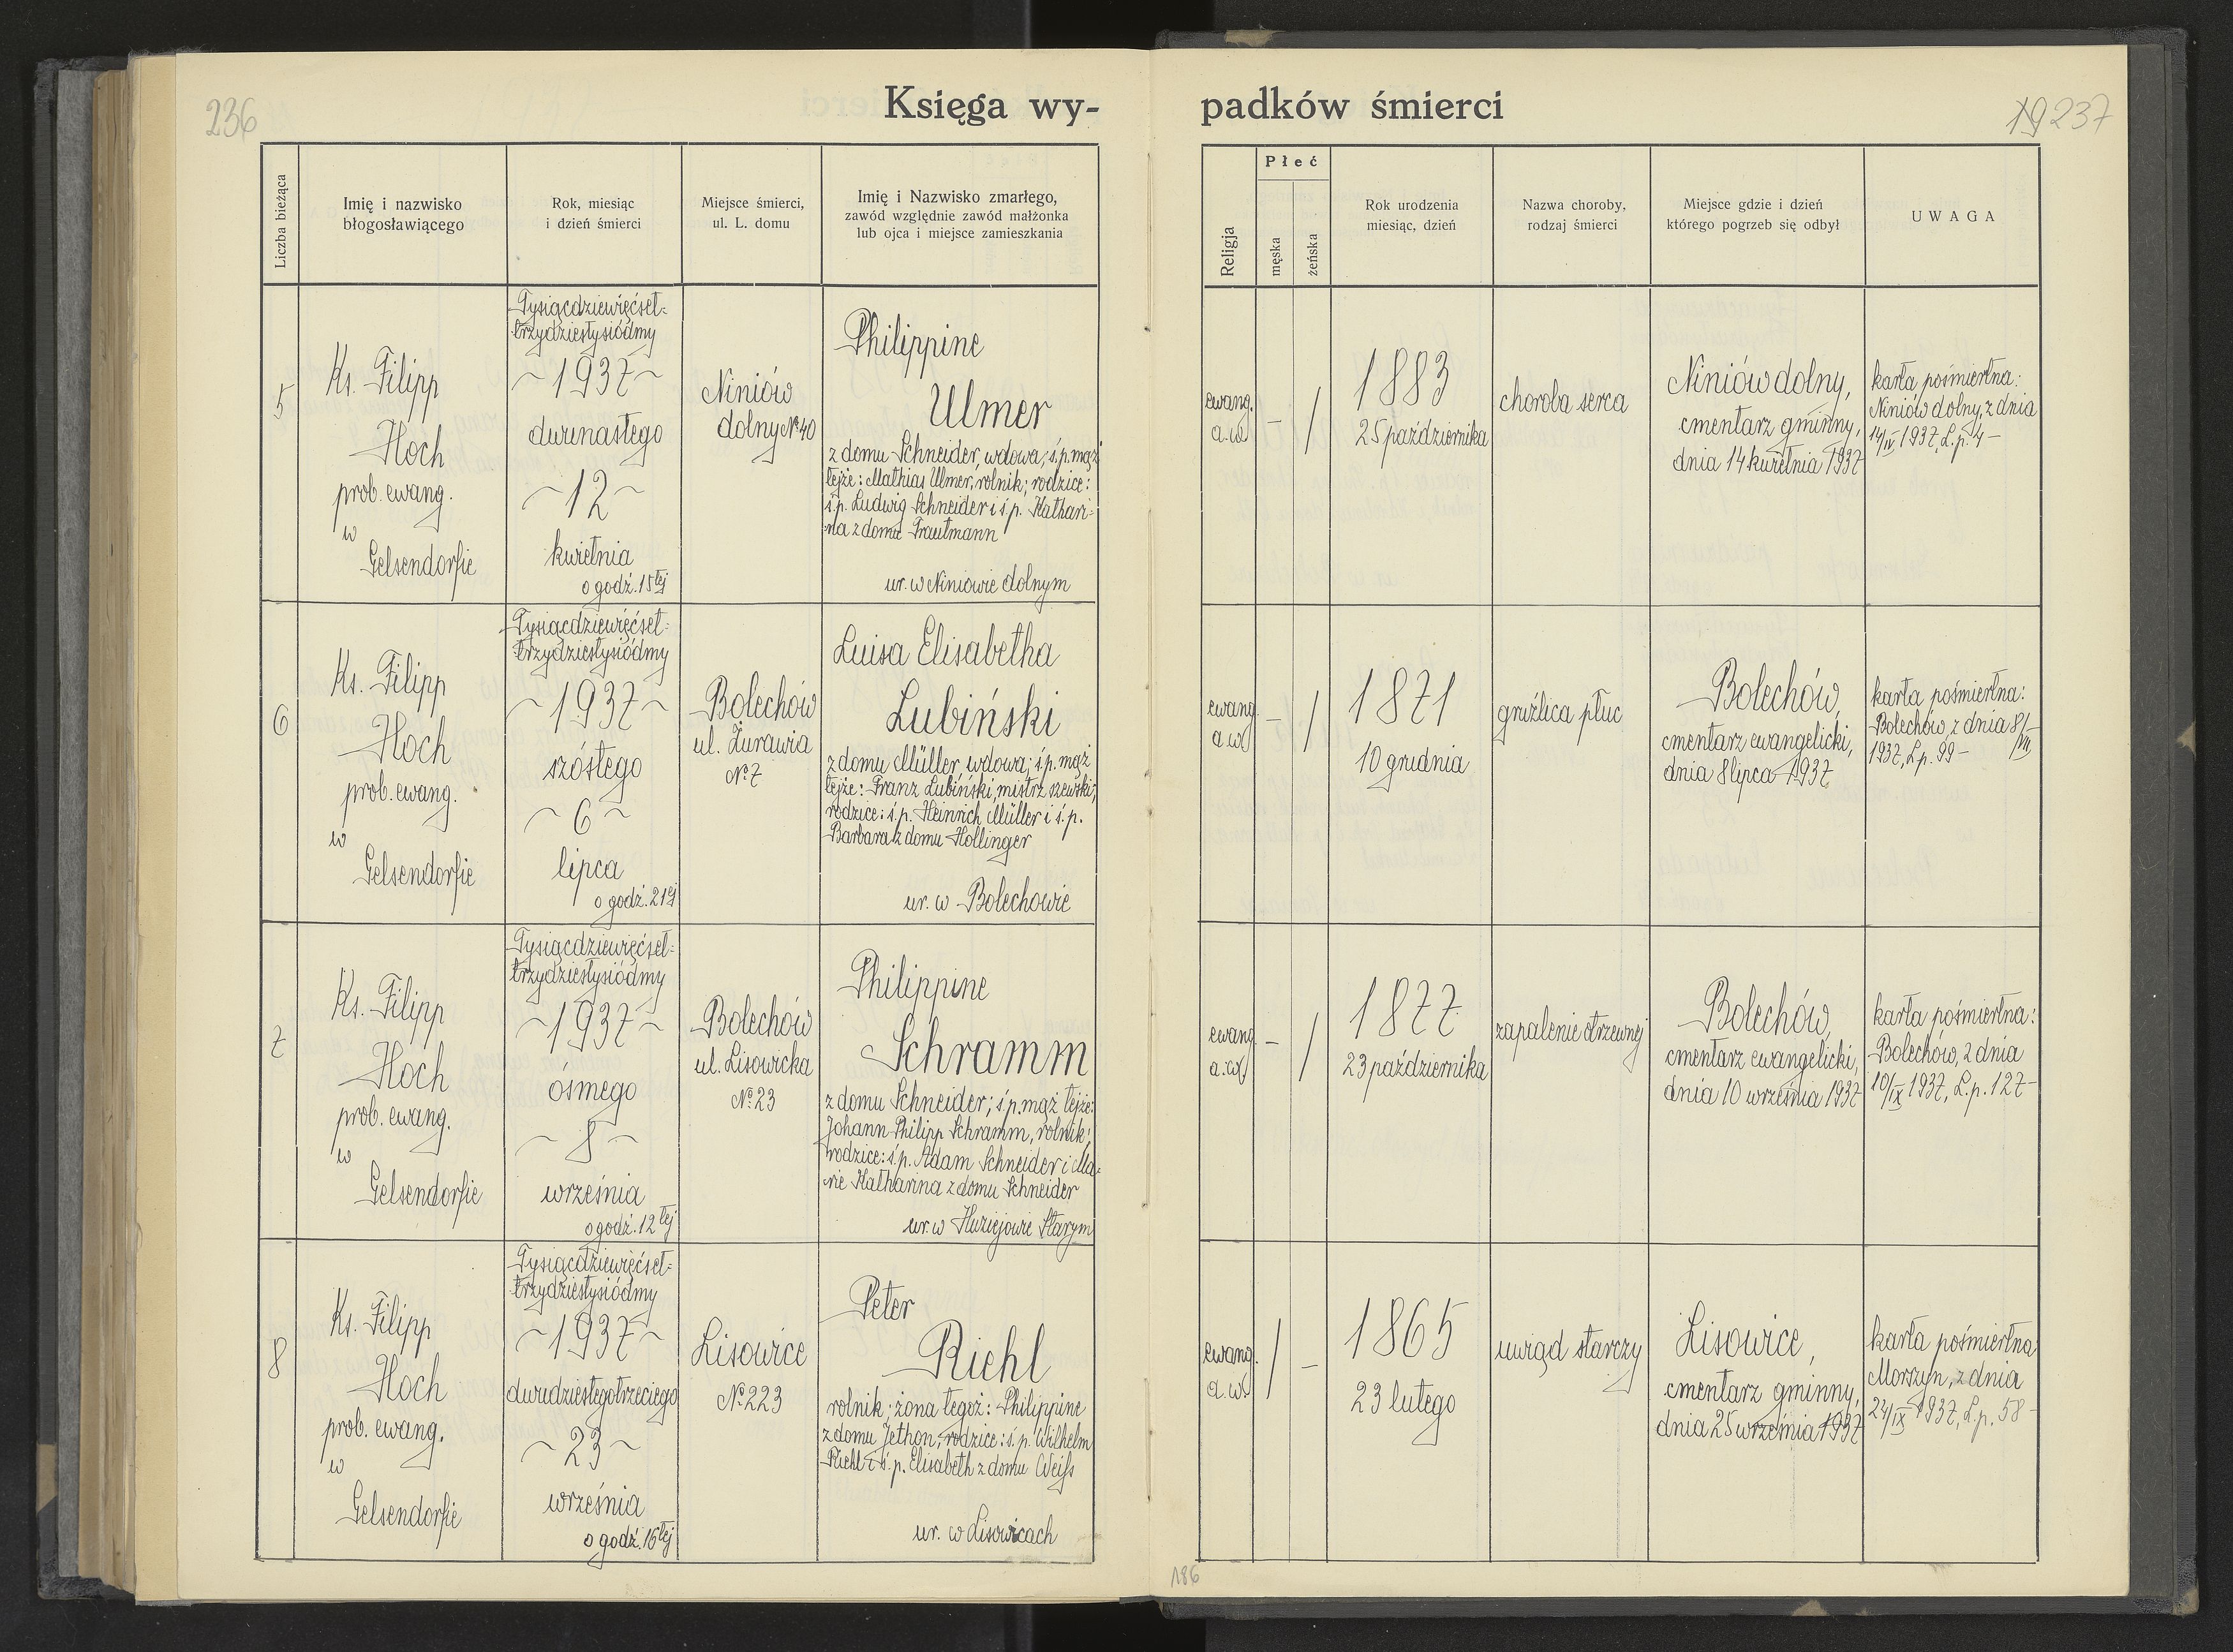 236
Księga wy-
Liczba bieżąca
Imię i nazwisko
błogosławiącego
Rok, miesiąc
i dzień śmierci
Miejsce śmierci,
ul. L. domu
Imię i Nazwisko zmarłego,
zawód względnie zawód małżonka
lub ojca i miejsce zamieszkania
5
Ks. Filipp
Hoch
prob. ewang.
w
Gelsendorfie
Tysiącdziewięćset-
trzydziestysiódmy
~1937~
dwunastego
~12~
kwietnia
o godź. 15tej
Niniów
dolny № 40
Philippine
Ulmer
z domu Schneider, wdowa; ś.p. mąż
tejże: Mathias Ulmer, rolnik; rodzice:
ś.p. Ludwig Schneider i ś.p. Kathari-
na z domu Trautmann
ur. w Niniowie dolnym
6
Ks. Filipp
Hoch
prob. ewang.
w
Gelsendorfie
Tysiącdziewięćset-
trzydziestysiódmy
~1937~
szóstego
~6~
lipca
o godź. 21ej
Bolechów
ul. Żurawia
№ 7
Luisa Elisabetha
Lubiński
z domu Müller, wdowa; ś.p. mąż
tejże: Franz Lubiński, mistrz szewski;
rodzice: ś.p. Heinrich Müller i ś.p.
Barbara z domu Hollinger
ur. w Bolechowie
7
Ks. Filipp
Hoch
prob. ewang.
w
Gelsendorfie
Tysiącdziewięćset-
trzydziestysiódmy
~1937~
ósmego
~8~
września
o godź. 12tej
Bolechów
ul. Lisowicka
№ 23
Philippine
Schramm
z domu Schneider; ś.p. mąż tejże:
Johann Philipp Schramm, rolnik;
rodzice: ś.p. Adam Schneider i Ma-
rie Katharina z domu Schneider
ur. w Huziejowie Starym
8
Ks. Filipp
Hoch
prob. ewang.
w
Gelsendorfie
Tysiącdziewięćset-
trzydziestysiódmy
~1937~
dwudziestegotrzeciego
~23~
września
o godź. 16tej
Lisowice
№ 223
Peter
Riehl
rolnik; żona tegoż: Philippine
z domu Jethon; rodzice: ś.p. Wilhelm
Riehl i ś.p. Elisabeth z domu Weiß
ur. w Lisowicach
padków śmierci
19 237
Religja
Płeć
męska
żeńska
Rok urodzenia
miesiąc, dzień
Nazwa choroby,
rodzaj śmierci
Miejsce gdzie i dzień
którego pogrzeb się odbył
UWAGA
ewang.
a.w.
–
/
1883
25 października
choroba serca
Niniów dolny,
cmentarz gminny,
dnia 14 kwietnia 1937
karta pośmiertna:
Niniów dolny, z dnia
14/IV 1937, L.p. 4 –
ewang.
a.w.
–
/
1871
10 grudnia
gruźlica płuc
Bolechów,
cmentarz ewangelicki,
dnia 8 lipca 1937
karta pośmiertna:
Bolechów, z dnia 8/VII
1937, L.p. 99 –
ewang.
a.w.
–
/
1877
23 października
zapalenie otrzewnej
Bolechów,
cmentarz ewangelicki,
dnia 10 września 1937
karta pośmiertna:
Bolechów, z dnia
10/IX 1937, L.p. 127 –
ewang.
a.w.
/
–
1865
23 lutego
uwiąd starczy
Lisowice,
cmentarz gminny,
dnia 25 września 1937
karta pośmiertna
Morszyn, z dnia
24/IX 1937, L.p. 58 –
186